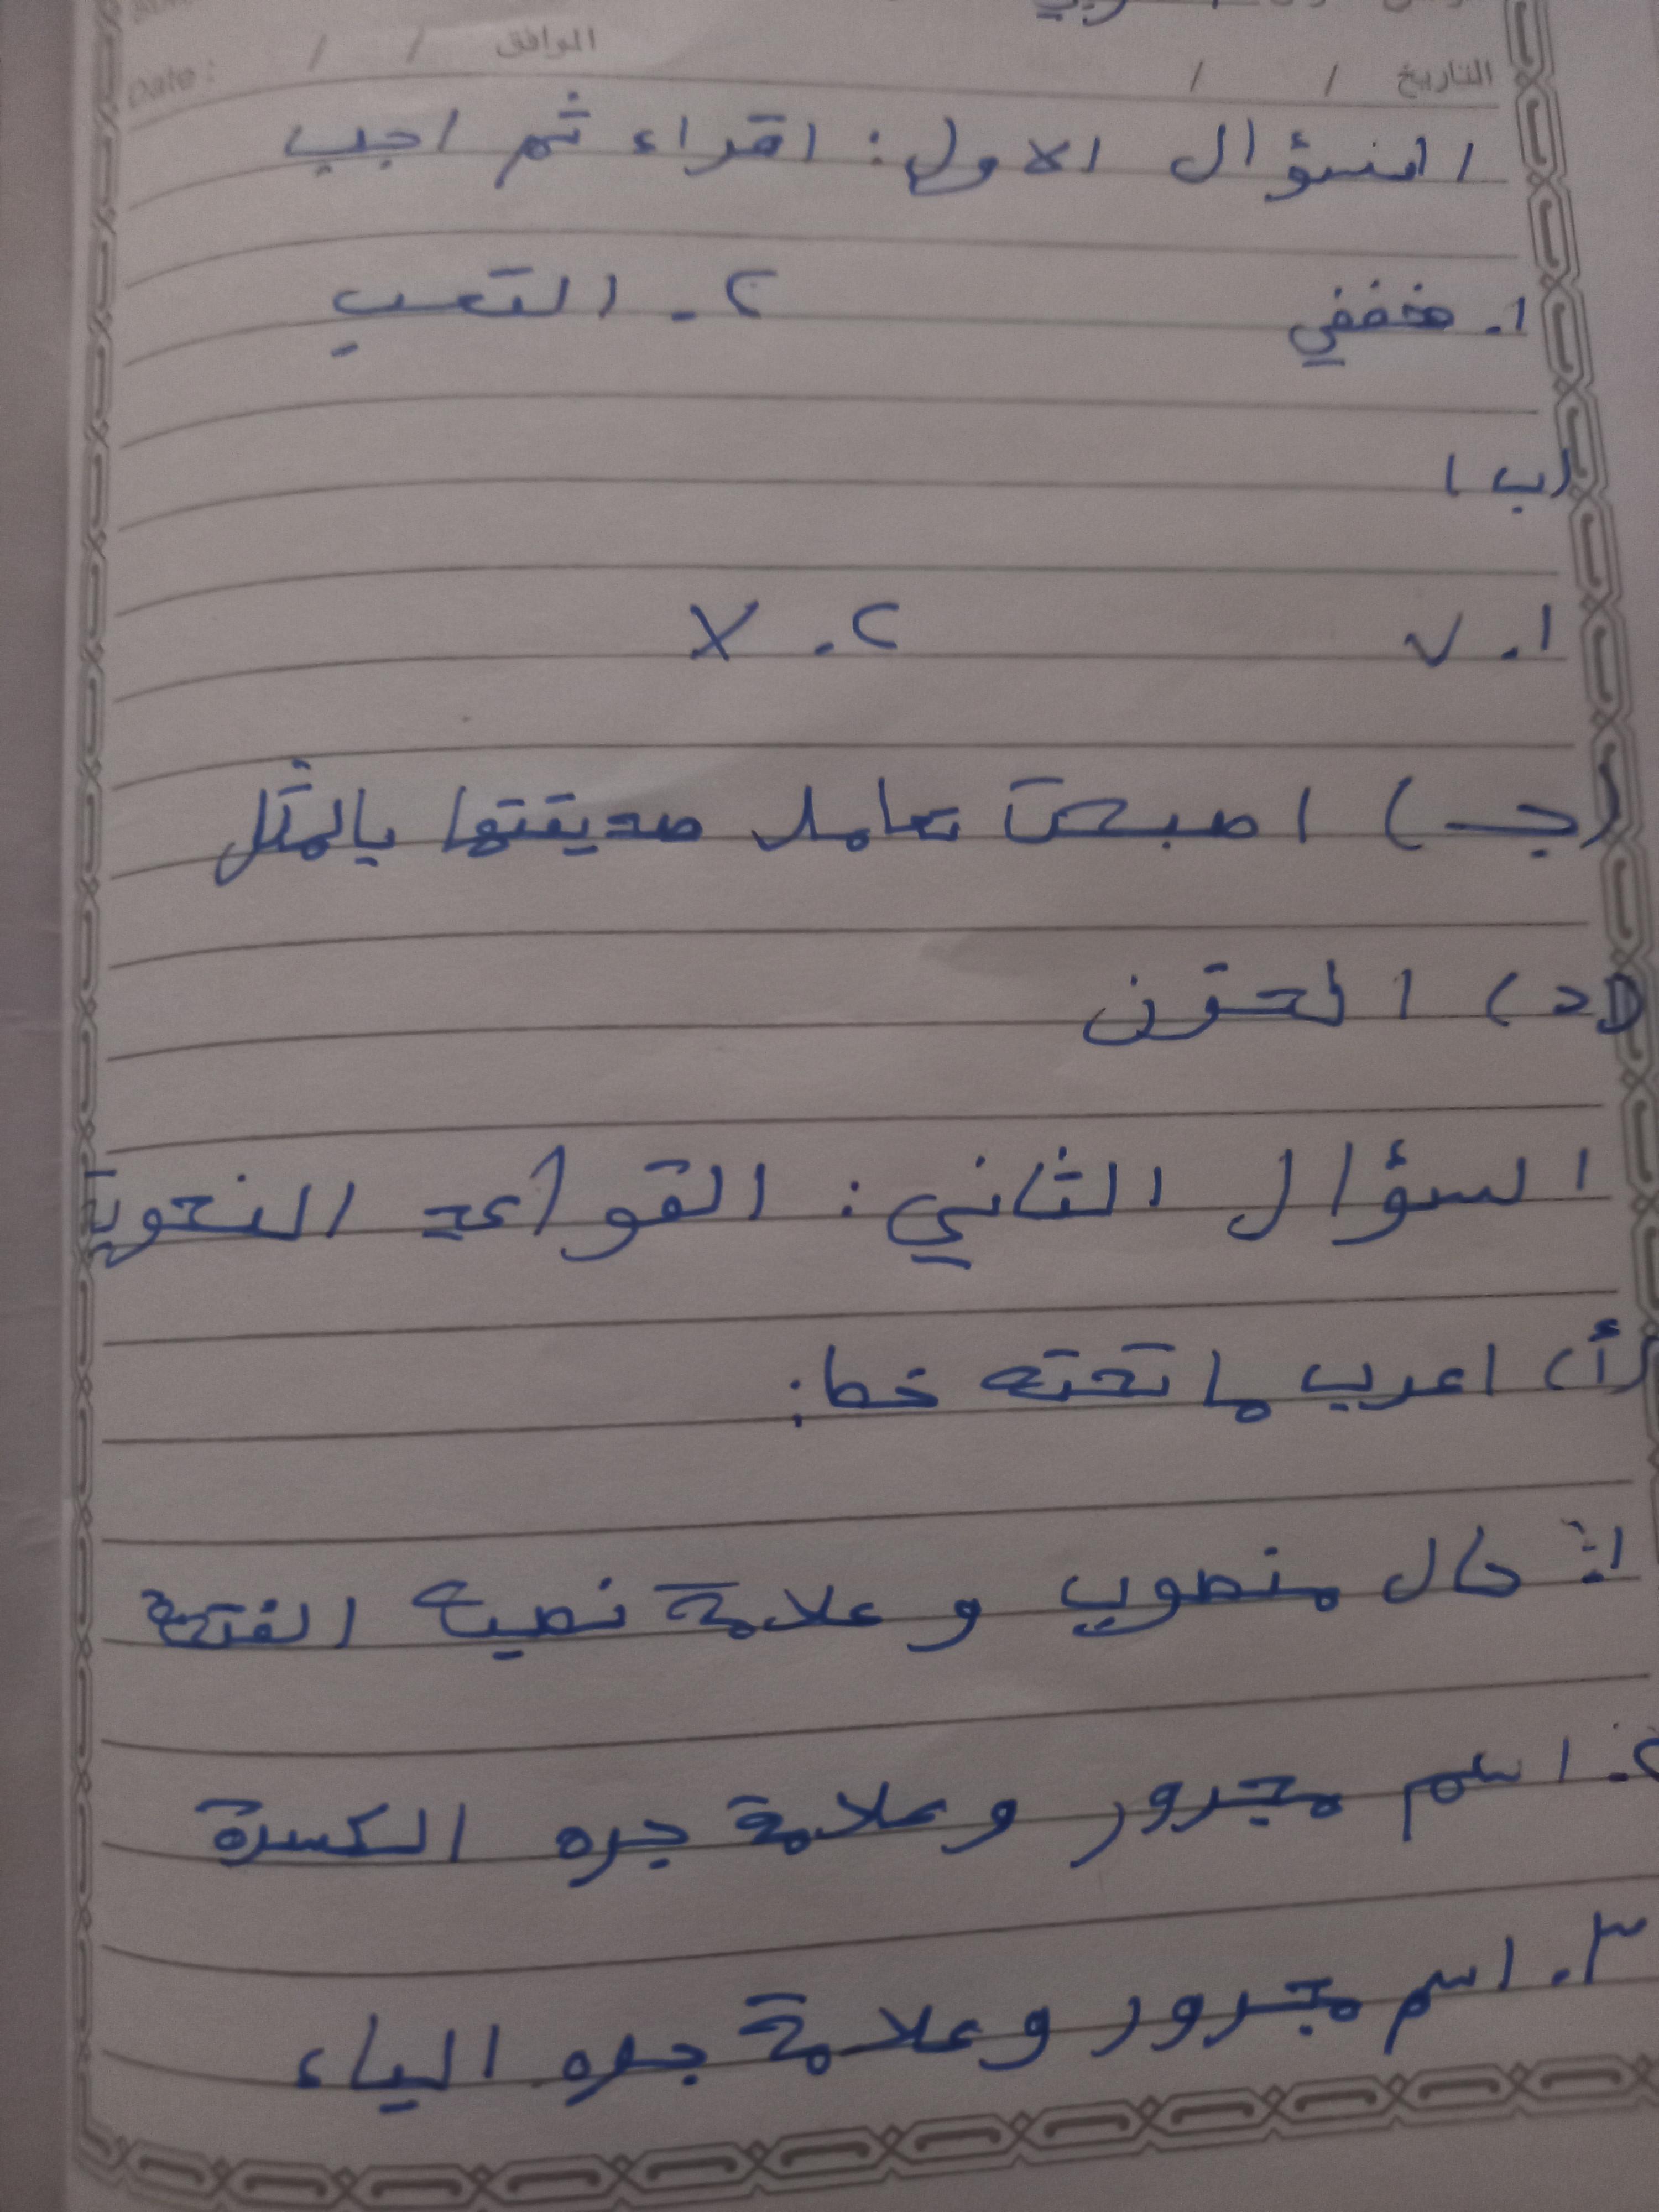 الموافق / / Date :
التاريخ / /
السؤال الاول : اقراء ثم اجب
١. خففي ٢. التعب
(ب)
١. ✓ ٢. X
(جـ) اصبحت تعامل صديقتها بالمثل
(د) الحزن
السؤال الثاني : القواعد النحوية
(أ) اعرب ما تحته خط :
١. حال منصوب وعلامة نصبه الفتحة
٢. اسم مجرور وعلامة جره الكسرة
٣. اسم مجرور وعلامة جره الياء